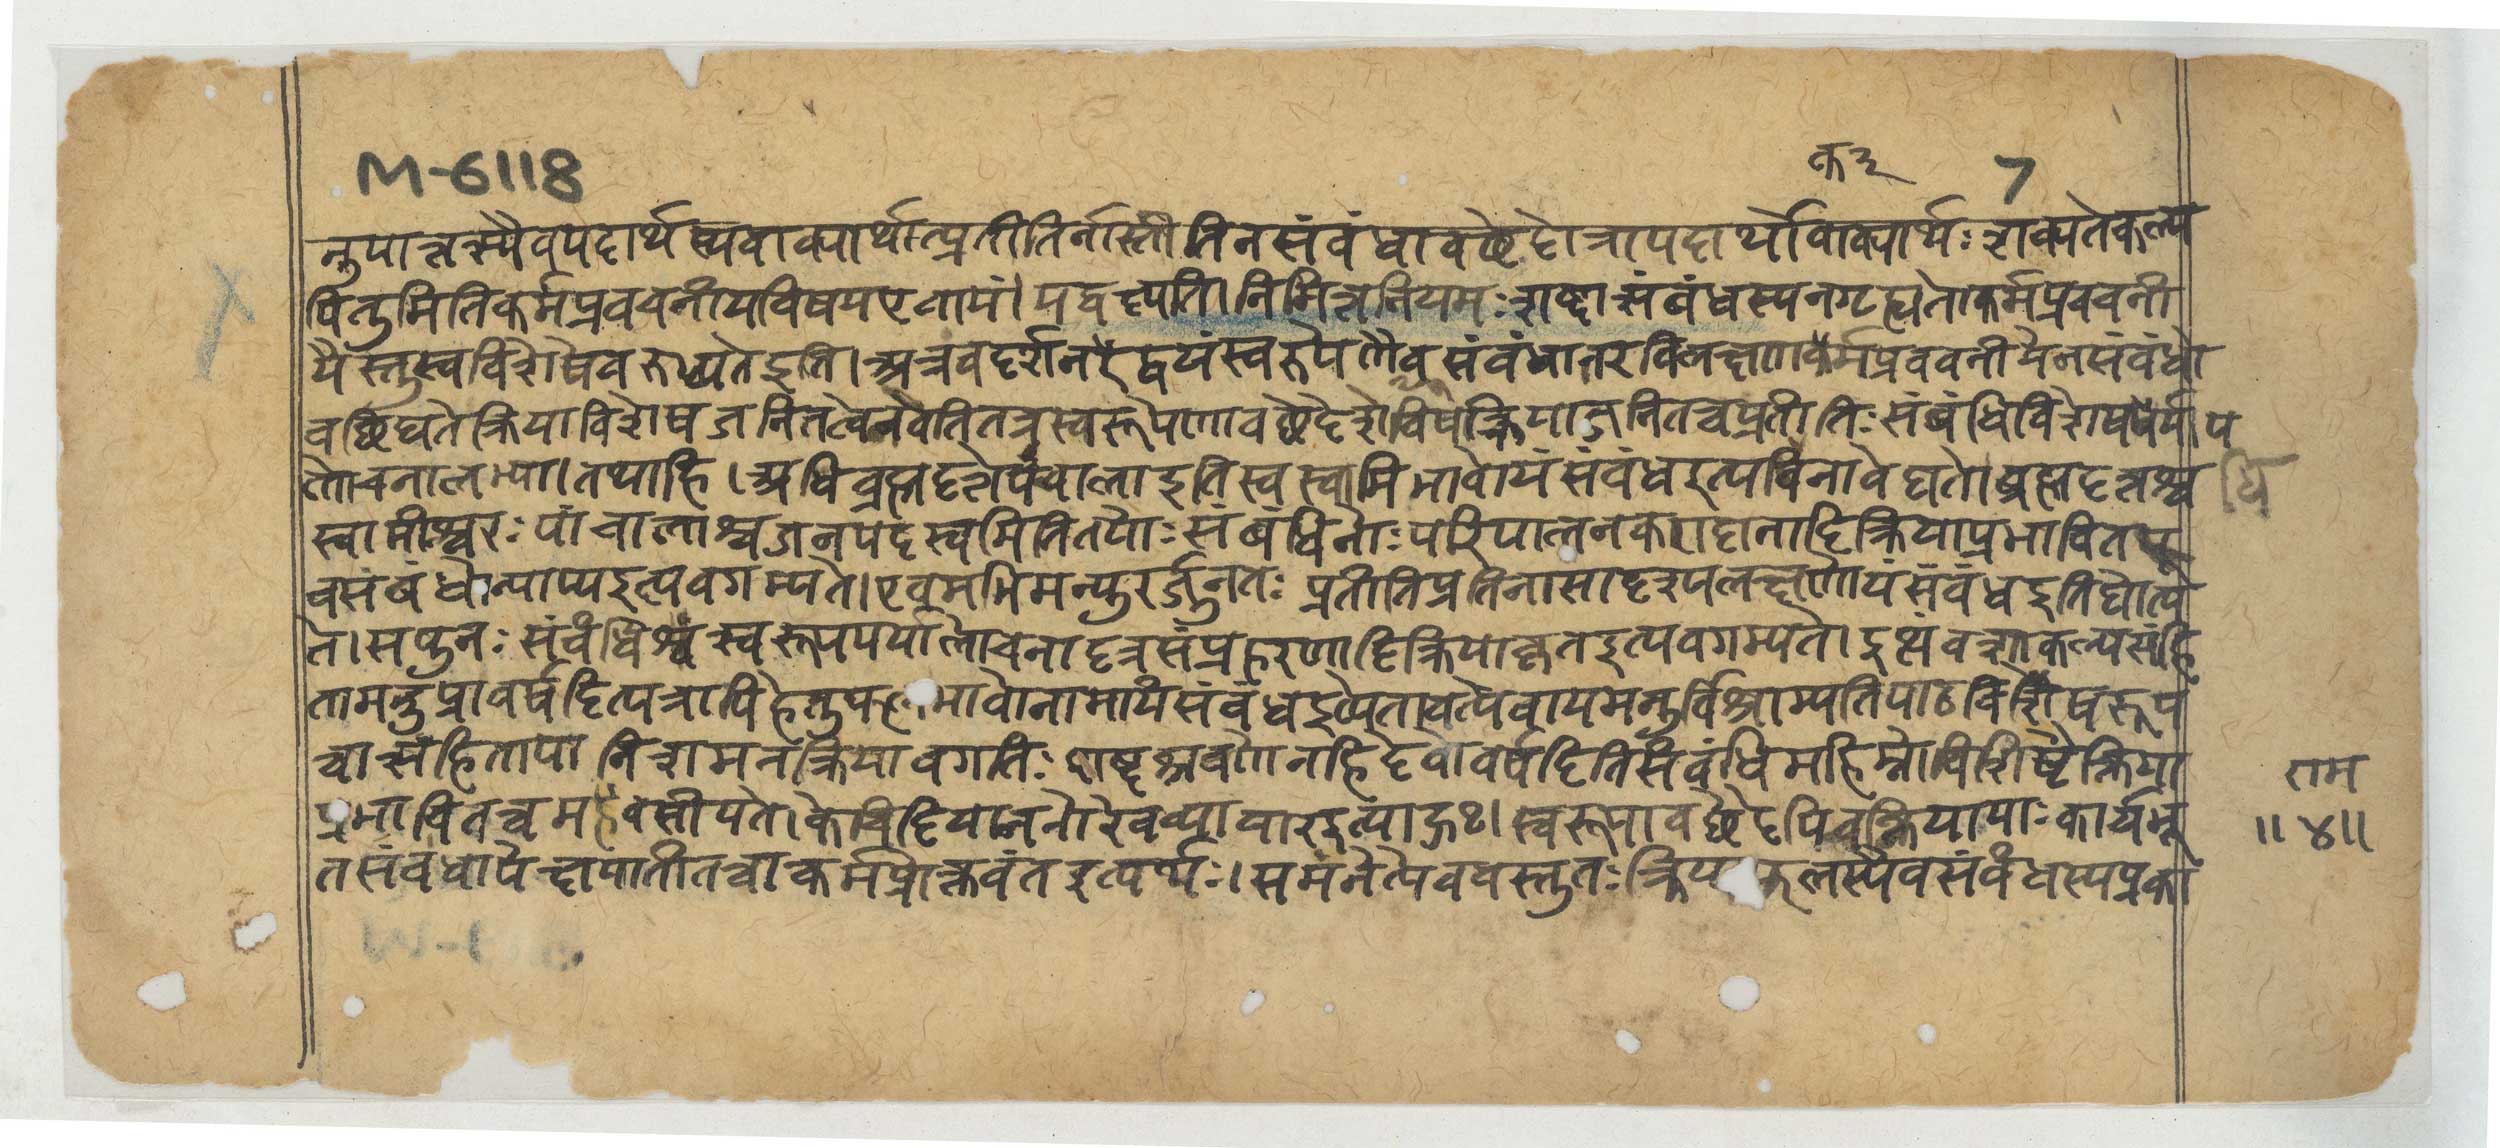 M-6118
7
न्तुपात्तस्यैवपदार्थस्यवाक्यार्थात्प्रतीतिर्नास्तीतिनसंवंधावछेदोत्रापदार्थोवाक्यार्थः शक्यतेकल्प
यितुमितिकर्मप्रवचनीयविषयएणायं। यद्वक्ष्यति। निमित्तनियमः शब्दात्संबंधस्यनगृह्यतेकर्मप्रवचनी
यैस्तुस्वविशेषेवरुध्यतेइति। अत्रचदर्शनद्वयंस्वरूपेणैवसंवंधांतरविलक्षणकर्मप्रवचनीयेनसंवंधो
वछिद्यतेक्रियाविशेषजनितत्वेनवेतितत्रस्वरूपेणावछेदेविशेषक्रियाजनितत्वप्रतीतिः संबंधिविशेषपर्याप
लोचनालभ्या। तथाहि। अधिब्रह्मदत्तेपंचालाइतिस्वस्वामिभावोयंसंवंधइत्यधिनावेद्यते। ब्रह्मदत्तश्च
स्वामीश्वरः पांचालाश्चजनपदस्वमितितयोः संबंधिनोः परिपालनकरादानादिक्रियाप्रभावितए
वसंबंधोन्याप्यइत्यवगम्यते। एवमभिमन्युरर्जुनतः प्रतीतिप्रतिनासादृश्यलक्षणोयंसंवंधइतिद्योत्य
ते। सपुनः संवंधिश्वस्वरूपपर्यालोचनादत्रसंप्रहरणादिक्रियाकृतइत्यवगम्यते। इत्थंचशाकल्यसंहि
तामनुप्रावर्षदित्यत्रापिहेतुफलभावोनामायंसंवंधइत्येतावत्येवायमनुर्विश्राम्यतिपाठविशेषरूप
त्वात्संहितायानिशमनंक्रियावगतिः शब्दश्रवणेनहिदेवोवर्षदितिसंवंधिमहिम्नाविशिष्टक्रिया
प्रभावितत्वमवसीयते। केचिदियानेनैरेवव्यापारइत्याहुः। स्वरूपावछेदपिचक्रियायाः कार्यभू
तसंवंधापेक्षयातीतत्वात्कर्मप्रोक्तवंतइत्यर्थः। समंनेत्येववस्तुतः क्रियाफलस्यैवसंवंधस्यप्रका
धि
तम
॥४॥